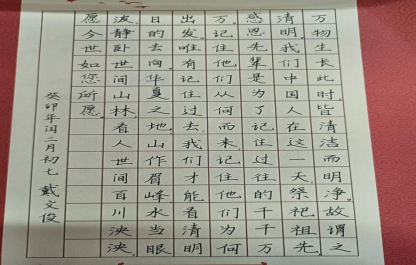 万物生长此时,皆清洁而明净。故谓之
清明。我们中国人在这一天祭祀祖先,
感恩先辈,是为了记住过往的千千万
万。记住他们从何而来,记住他们为何
出发。唯有记住过去,我们才能看清明
日的去向。华夏之地,山作眉峰水当眼
波,静卧世间山林,看人世间百川泱泱。
愿今世如您所愿。
癸卯年闰二月初七 戴文俊